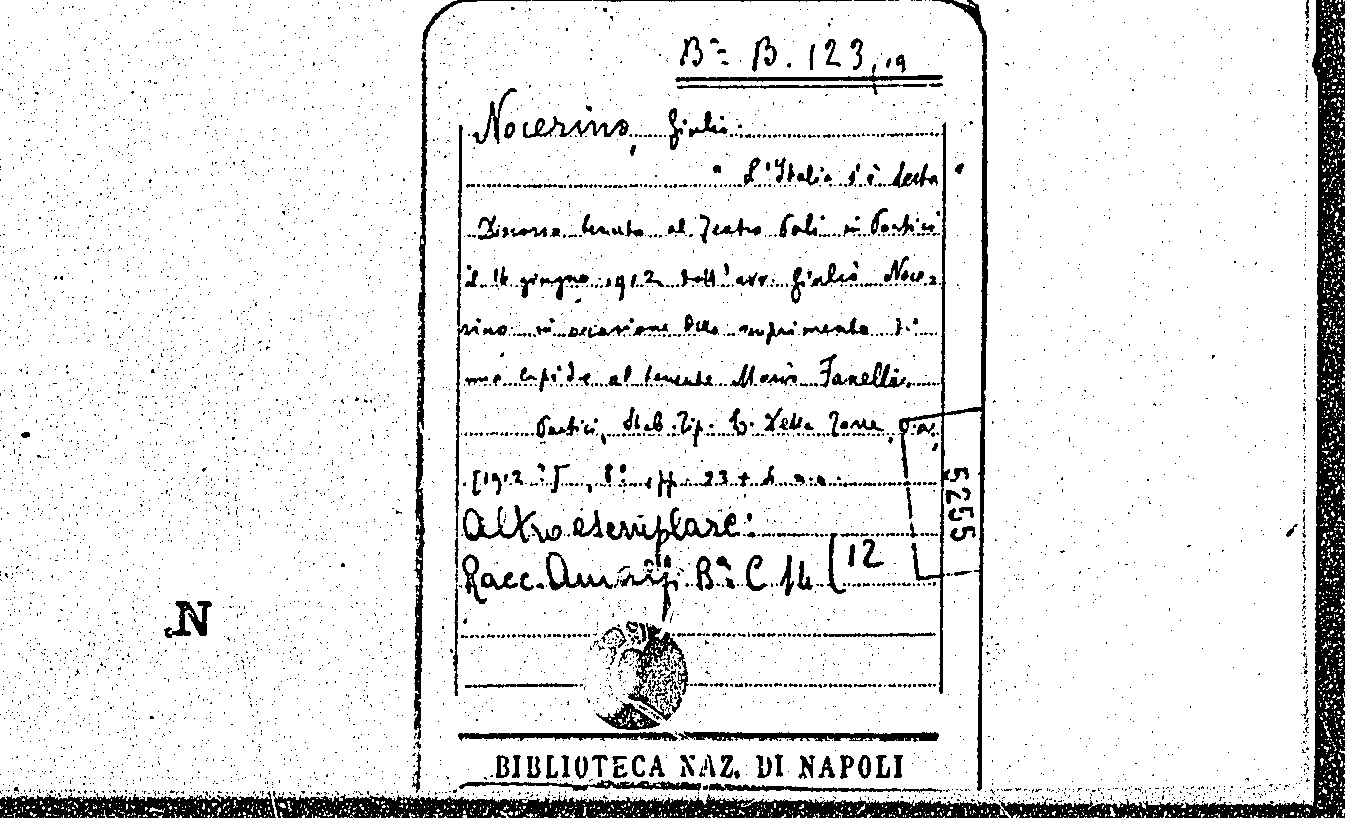 Bª B. 123,19
Nocerino, Giulio.
"L'Italia s'è desta"
Discorso tenuto al Teatro Poli in Portici
il 14 giugno 1912 dall'avv. Giulio Noce-
rino in occasione della
una al tenente Mario Fanelli.
Portici, Stab. Tip. E. Della Torre, s.a.,
[1912 ?], 8°, pp. 23 + n.n.
Altro esemplare:
Racc. Amalfi Bª C 14 [12
5255
N
BIBLIOTECA NAZ. DI NAPOLI